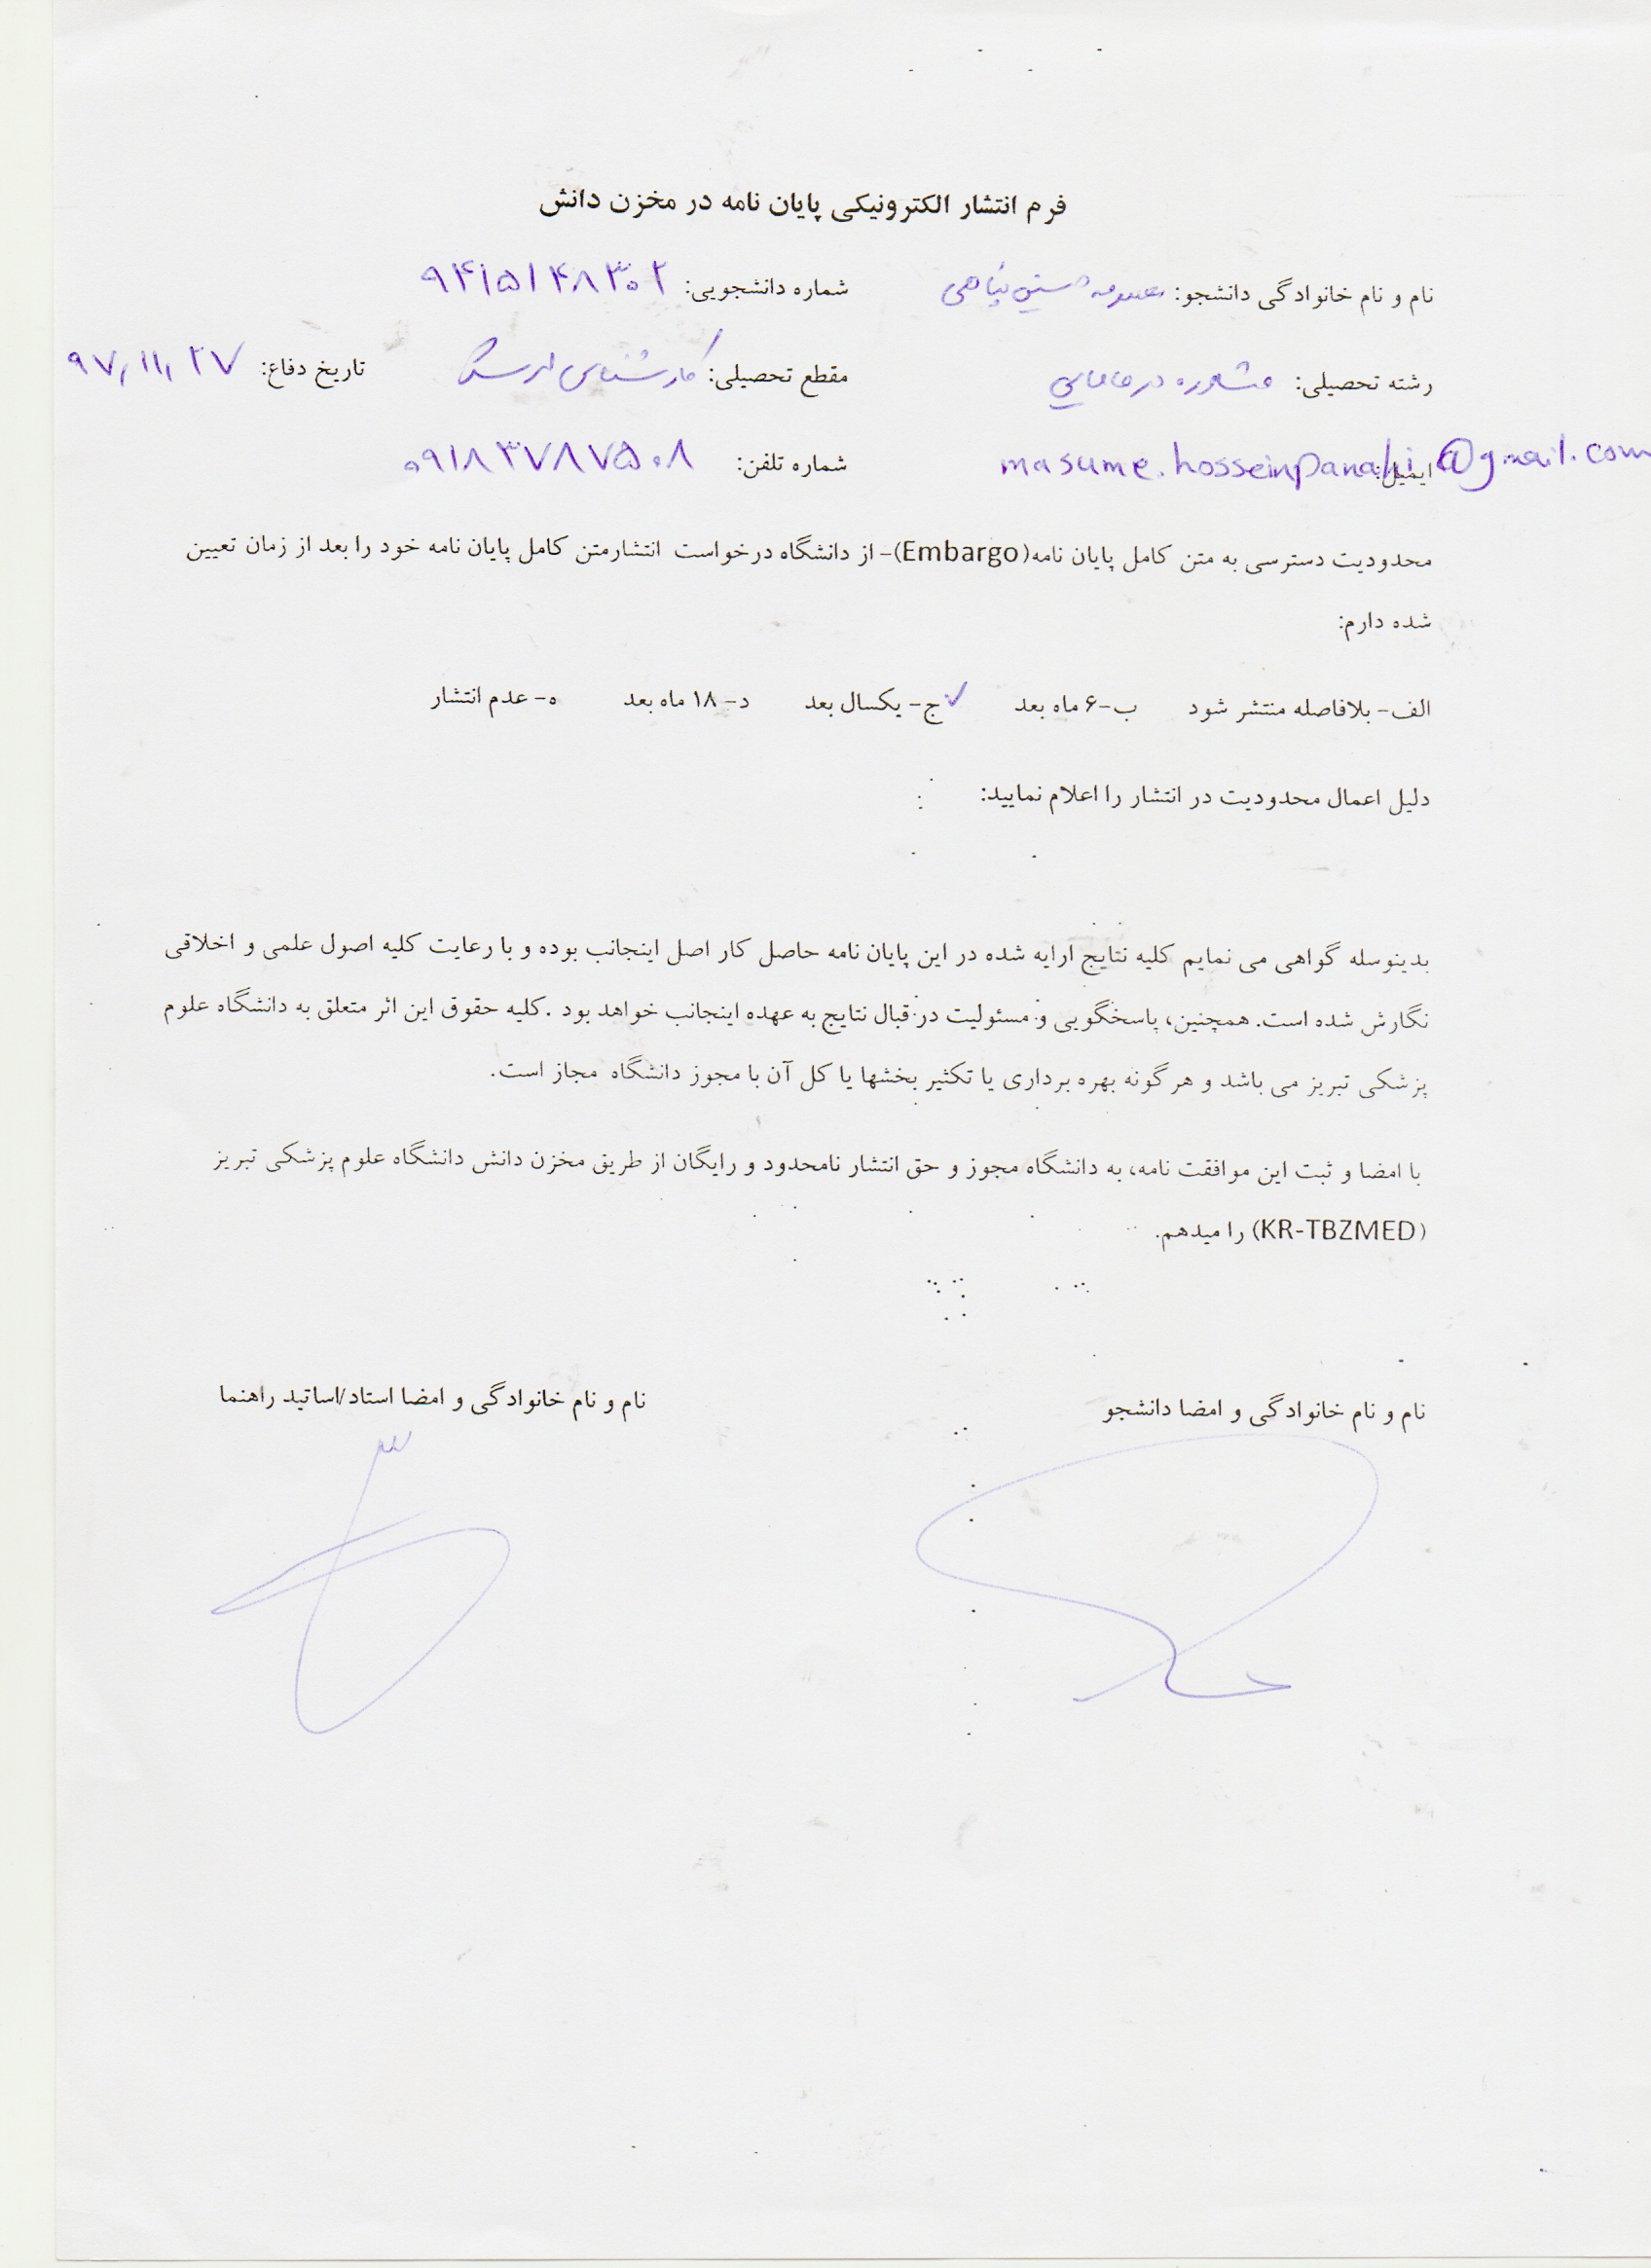 فرم انتشار الکترونیکی پایان نامه در مخزن دانش
نام و نام خانوادگی دانشجو: معصومه حسین پناهی شماره دانشجویی: ۹۴۱۵۱۴۸۳۰۲
رشته تحصیلی: مشاوره در مامایی مقطع تحصیلی: کارشناسی ارشد تاریخ دفاع: ۹۷/۱۱/۲۷
ایمیل: masume.hosseinpanahi@gmail.com شماره تلفن: ۰۹۱۸۳۷۸۷۵۰۸
محدودیت دسترسی به متن کامل پایان نامه(Embargo)- از دانشگاه درخواست انتشارمتن کامل پایان نامه خود را بعد از زمان تعیین
شده دارم:
الف- بلافاصله منتشر شود ب-۶ ماه بعد ✓ج- یکسال بعد د- ۱۸ ماه بعد ه- عدم انتشار
دلیل اعمال محدودیت در انتشار را اعلام نمایید:
بدینوسله گواهی می نمایم کلیه نتایج ارایه شده در این پایان نامه حاصل کار اصل اینجانب بوده و با رعایت کلیه اصول علمی و اخلاقی
نگارش شده است. همچنین، پاسخگویی و مسئولیت در قبال نتایج به عهده اینجانب خواهد بود .کلیه حقوق این اثر متعلق به دانشگاه علوم
پزشکی تبریز می باشد و هر گونه بهره برداری یا تکثیر بخشها یا کل آن با مجوز دانشگاه مجاز است.
با امضا و ثبت این موافقت نامه، به دانشگاه مجوز و حق انتشار نامحدود و رایگان از طریق مخزن دانش دانشگاه علوم پزشکی تبریز
(KR-TBZMED) را میدهم.
نام و نام خانوادگی و امضا دانشجو نام و نام خانوادگی و امضا استاد/اساتید راهنما